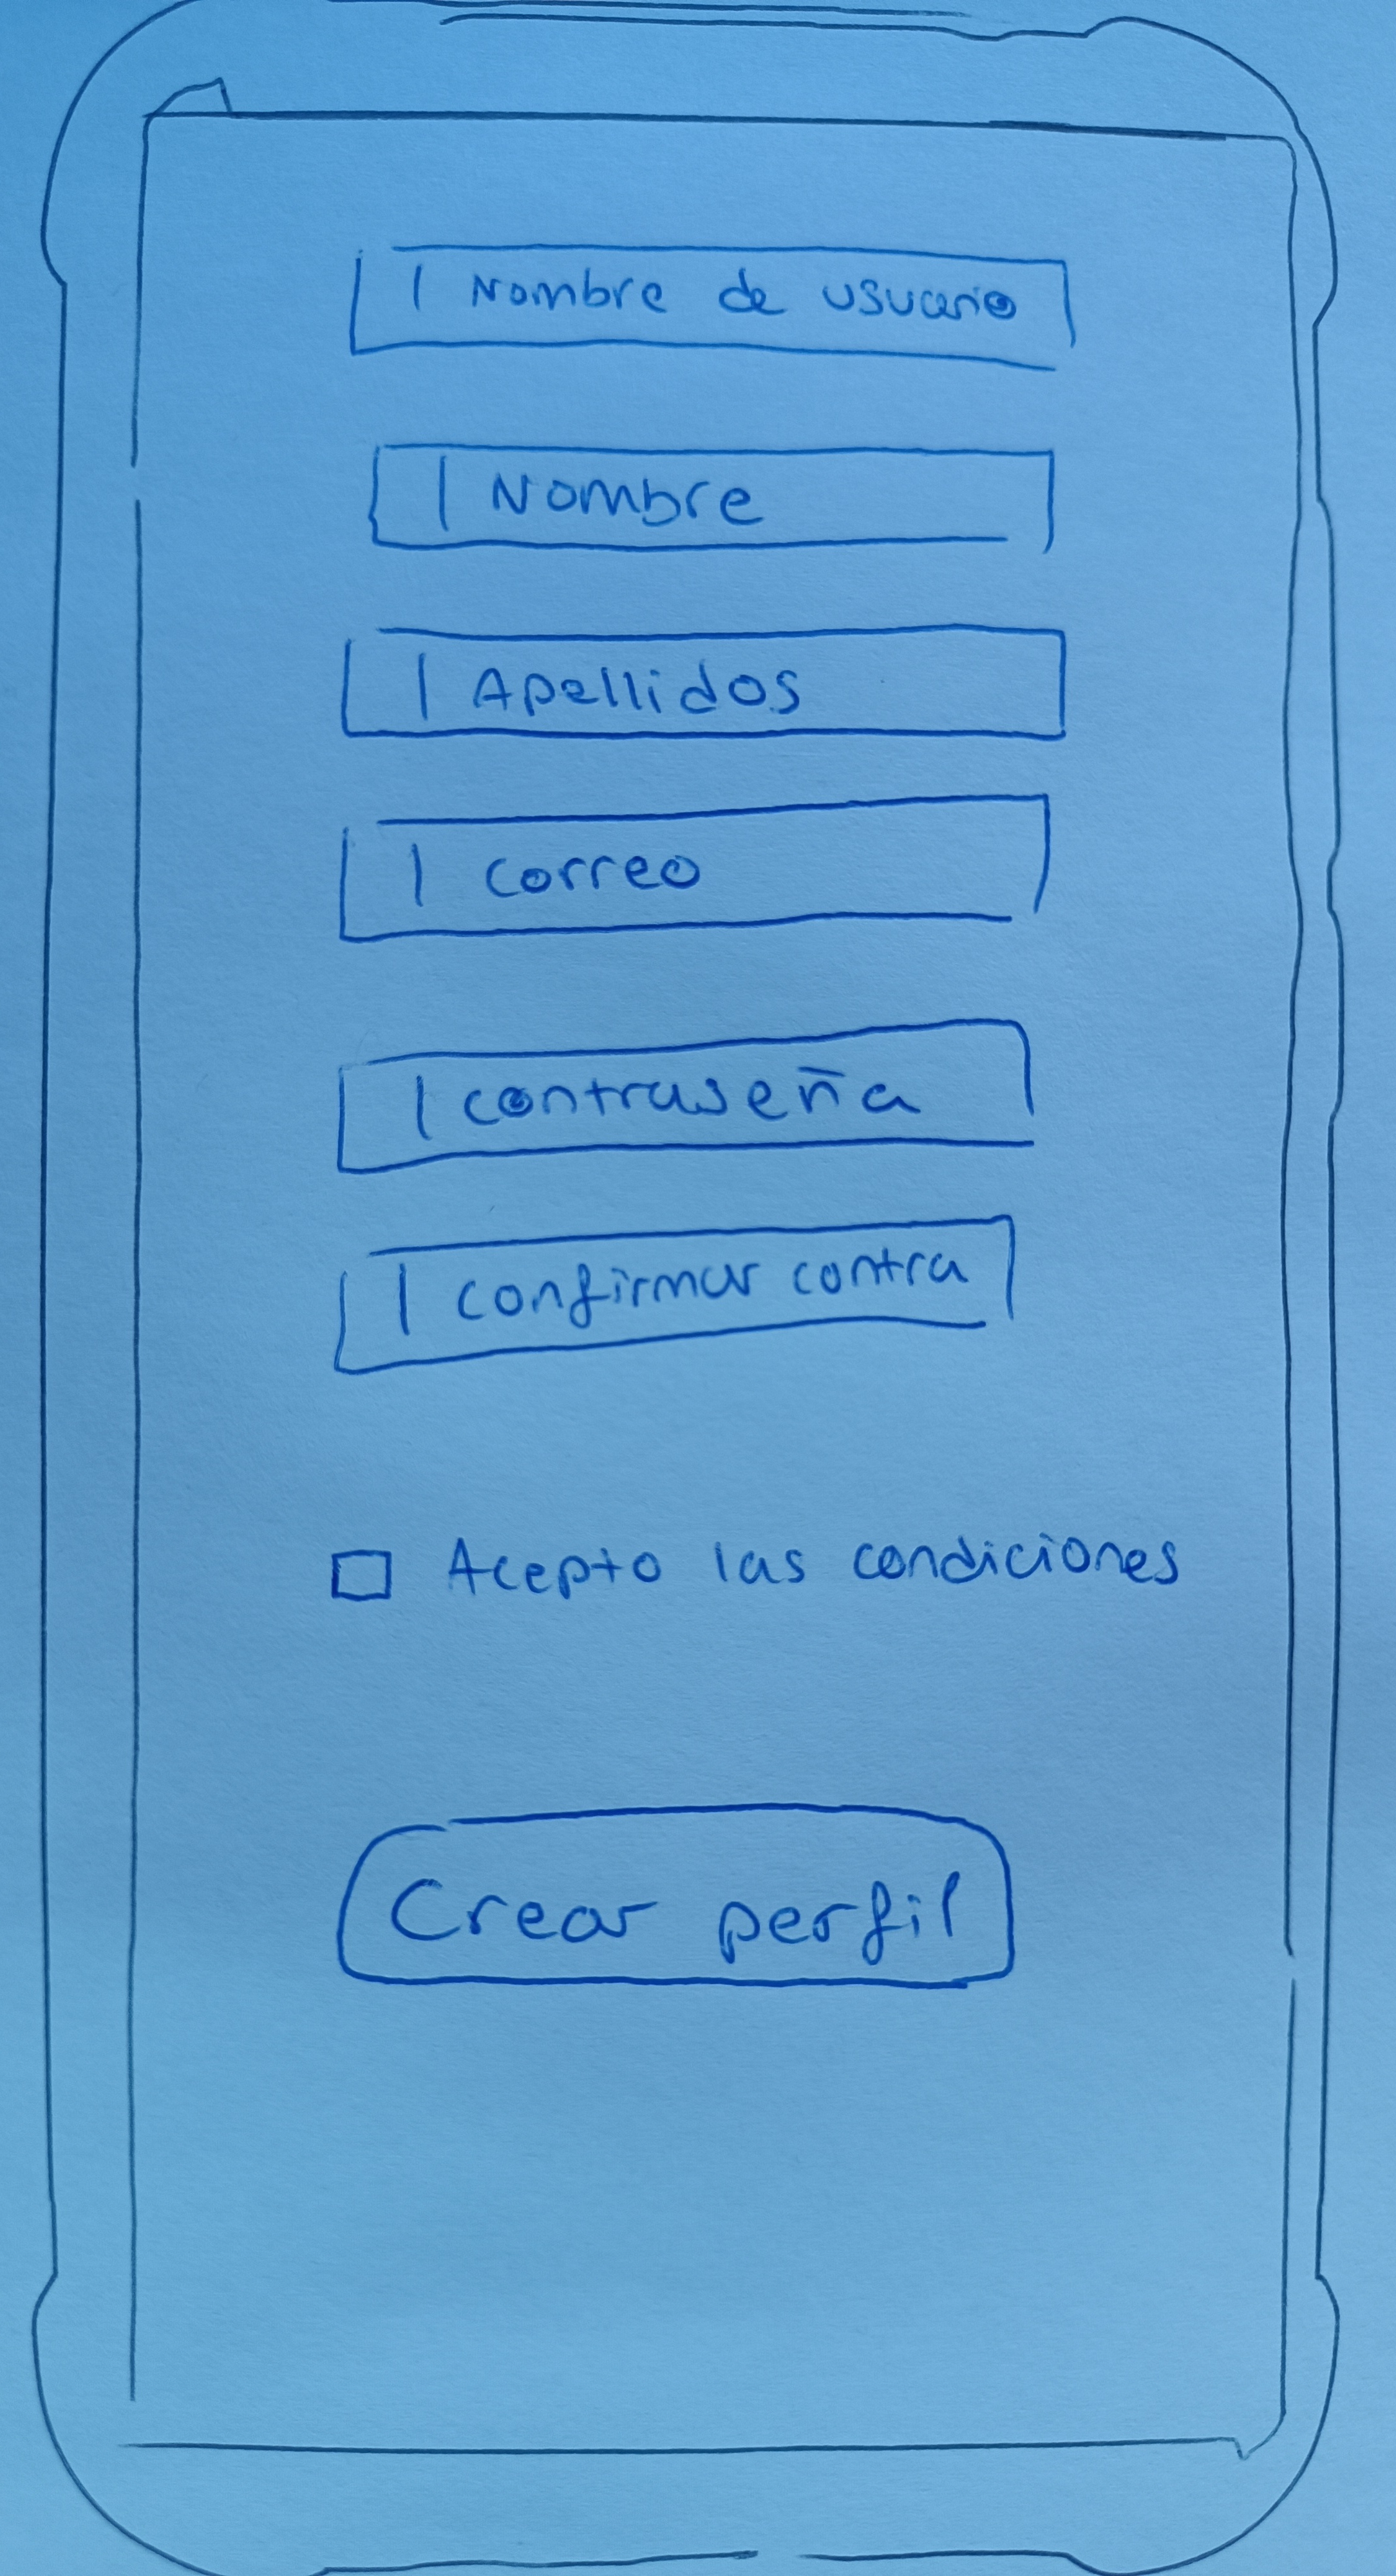 Nombre de usuario
Nombre
Apellidos
Correo
contraseña
confirmar contra
Acepto las condiciones
Crear perfil